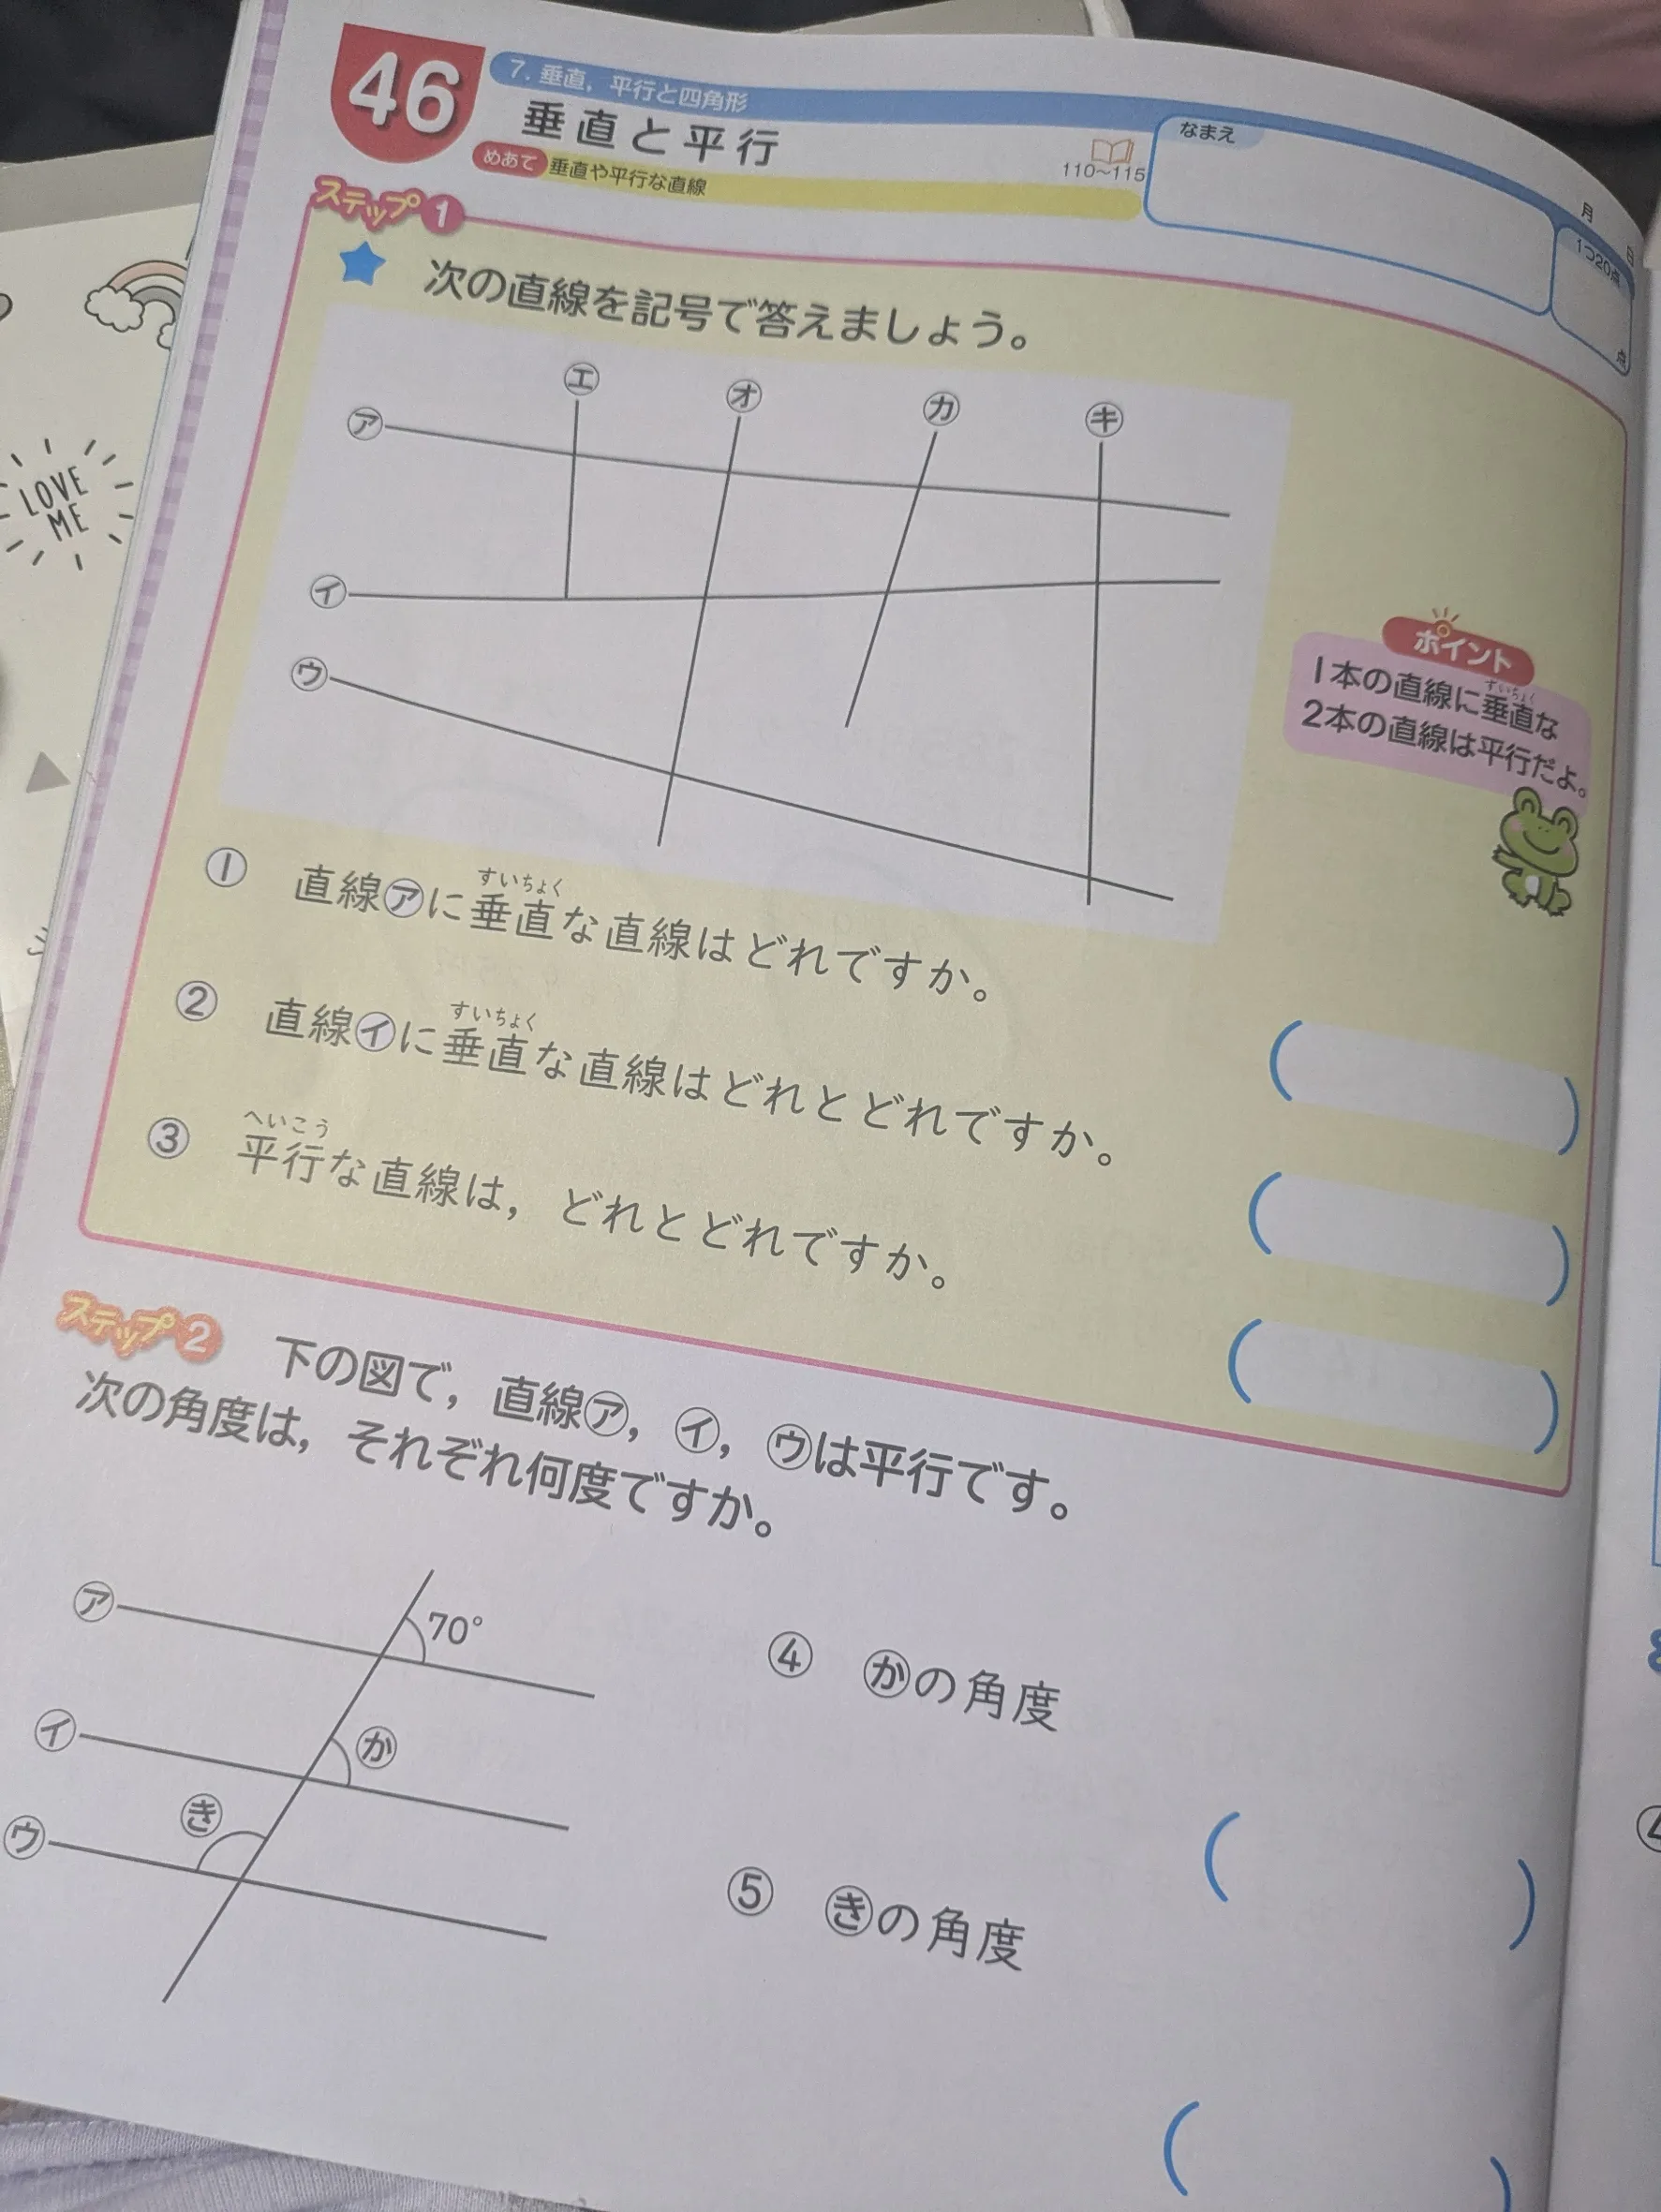 LOVE
ME
46
7. 垂直，平行と四角形
垂直と平行
めあて 垂直や平行な直線
110～115
なまえ
月 日
1つ20点
点
ステップ 1
次の直線を記号で答えましょう。
㋐
㋑
㋒
㋓
㋔
㋕
㋖
ポイント
1本の直線に垂直な
すいちょく
2本の直線は平行だよ。
① 直線㋐に垂直な直線はどれですか。
すいちょく
② 直線㋑に垂直な直線はどれとどれですか。
すいちょく
③ 平行な直線は，どれとどれですか。
へいこう
ステップ 2
下の図で，直線㋐，㋑，㋒は平行です。
次の角度は，それぞれ何度ですか。
㋐
70°
㋑
か
㋒
き
④ かの角度
⑤ きの角度